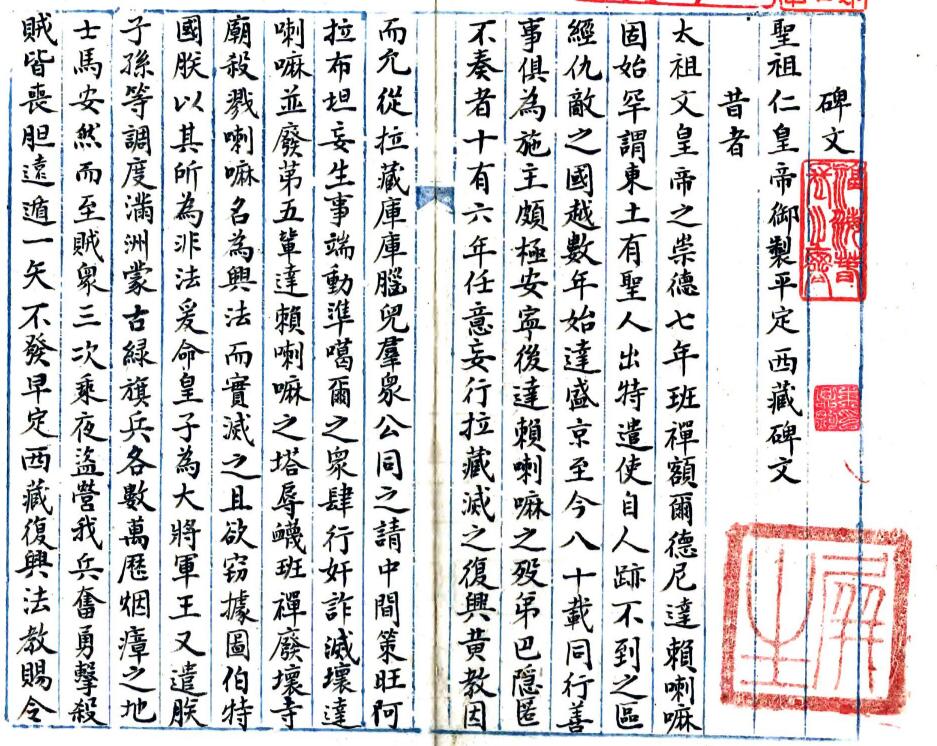 碑文
聖祖仁皇帝御製平定西藏碑文
昔者
太祖文皇帝之崇德七年班禪額爾德尼達賴喇嘛
固始罕謂東土有聖人出特遣使自人跡不到之區
經仇敵之國越數年始達盛京至今八十載同行善
事俱為施主頗極安寧後達賴喇嘛之歿弟巴隱匿
不奏者十有六年任意妄行拉藏滅之復興黃教因
而允從拉藏庫庫腦兒羣衆公同之請中間策旺阿
拉布坦妄生事端動準噶爾之衆肆行奸詐滅壞達
喇嘛並廢第五輩達賴喇嘛之塔辱衊班禪廢壞寺
廟殺戮喇嘛名為興法而實滅之且欲窃據圖伯特
國朕以其所為非法爰命皇子為大將軍王又遣朕
子孫等調度滿洲蒙古綠旗兵各數萬歷烟瘴之地
士馬安然而至賊衆三次乘夜盜營我兵奮勇擊殺
賊皆喪胆遠遁一矢不發早定西藏復興法教賜令